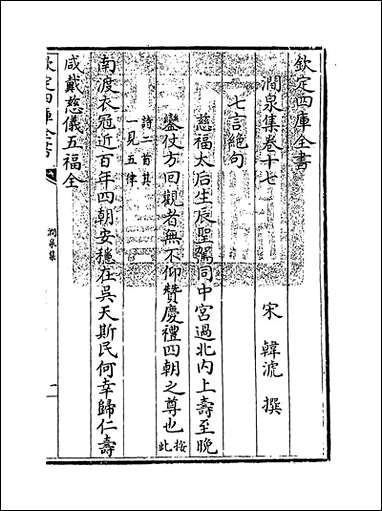 欽定四庫全書
澗泉集卷十七
宋 韓淲 撰
七言絶句
慈福太后生辰聖駕同中宮過北内上壽至晚
鑾仗方回觀者無不仰贊慶禮四朝之尊也按此
詩二首其一見五律
南渡衣冠近百年四朝安穏在吳天斯民何幸歸仁壽
咸戴慈儀五福全
欽定四庫全書
澗泉集
一